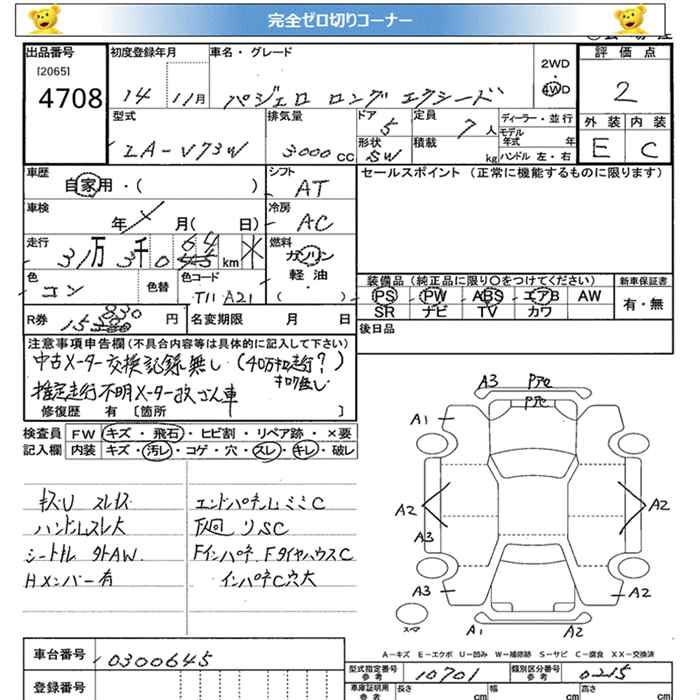 完全ゼロ切りコーナー
出品番号
[2065]
4708
初度登録年月
14 11月
車名・グレード
パジェロ ロング エクシード
2WD
4WD
評価点
2
外装 内装
E C
型式
LA-V73W
排気量
3000CC
ドア
5
形状
SW
定員
7人
積載
kg
ディーラー・並行
モデル年式 年
ハンドル 左・右
車歴
自家用・( )
シフト
AT
車検
年 月( 日)
冷房
AC
走行
31万3千0 64 km
燃料
ガソリン
軽油・
( )
色
コン
色替
色コード
T11 A21
R券
円
名変期限 月 日
セールスポイント (正常に機能するものに限ります)
装備品 (純正品に限り〇をつけてください)
PS PW ABS エアB AW
SR ナビ TV カワ
新車保証書
有・無
後日品
注意事項申告欄(不具合内容等は具体的に記入して下さい)
中古メーター交換記録無し (40万キロ走行?)
キロク無し
推定走行不明メーター改ざん車
修復歴 有 [箇所 ]
検査員記入欄
FW キズ・飛石・ヒビ割・リペア跡・×要
内装 キズ・汚レ・コゲ・穴・スレ・キレ・破レ
キズU スレキズ
ハンドルスレ大
シートドル 外AW.
Hメンバー有
エンドパネルミミC
下回リSC
Fインパネ、FタイヤハウスC
インパネC穴大
A3 Pアセ
Pアセ
A1
A2
A2
A3
A3
A2
スペア
A1
A2
A－キズ E－エクボ U－凹み W－補修跡 S－サビ C－腐食 XX－交換済
車台番号
0300645
登録番号
型式指定番号
参考
10701
類別区分番号
参考
0215
車庫証明用
参考
長さ
cm
幅
cm
高さ
cm